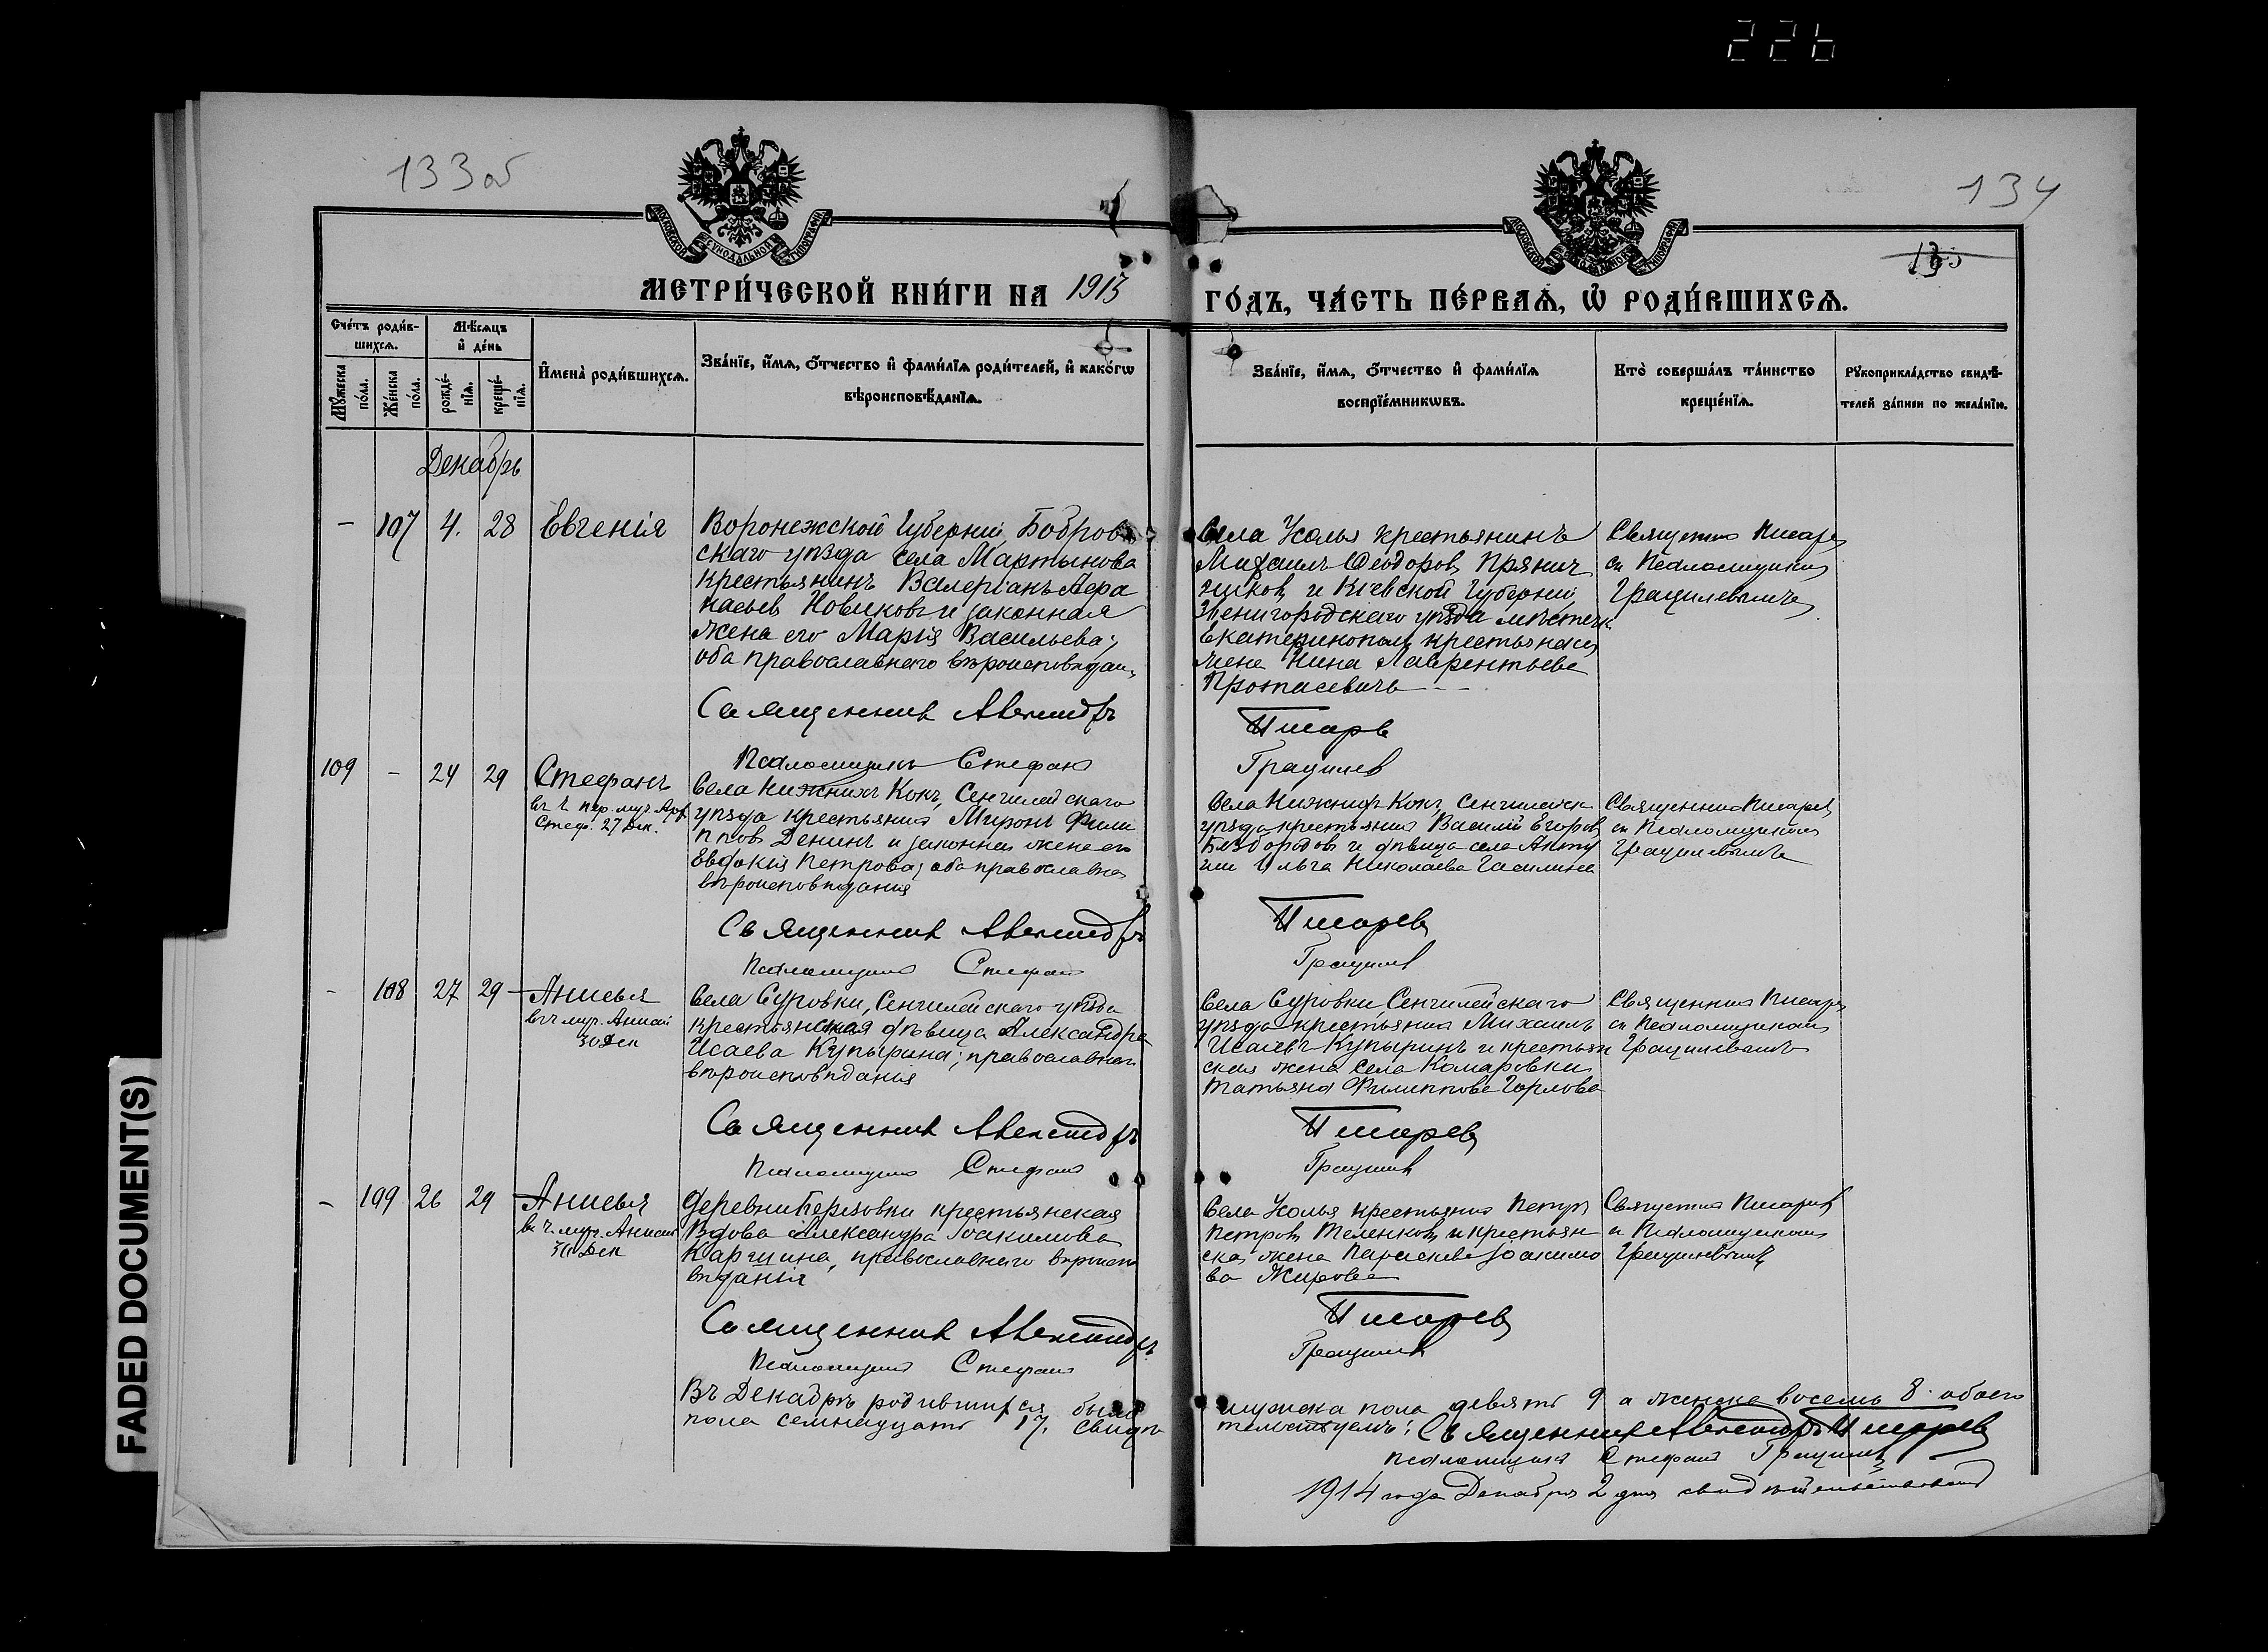 226
133об
134
МЕТРИ́ЧЕСКОЙ КНИ́ГИ НА 1913 ГО́ДЪ, ЧА́СТЬ ПЕ́РВАѦ, Ѿ РОДИ́ВШИХСѦ.
Сче́тъ роди́в-
шихсѧ.
Мꙋ́жеска по́ла.
Же́нска по́ла.
Мѣ́сѧцъ
и҆ де́нь
рожде́-
нїѧ.
креще́-
нїѧ.
И҆мена̀ роди́вшихсѧ.
Зва́нїе, и҆́мѧ, ѻ҆́тчество и҆ фами́лїѧ роди́телей, и҆ како́гѡ
вѣроисповѣ́данїѧ.
Зва́нїе, и҆́мѧ, ѻ҆́тчество и҆ фами́лїѧ
воспрїе́мникѡвъ.
Кто̀ соверша́лъ та́инство
креще́нїѧ.
Рꙋкоприкла́дство свидѣ́-
телей за́писи по жела́нїю.
Декабрь
– 107 4. 28 Евгенія
Воронежской Губерніи, Бобров
скаго уѣзда села Мартынова
крестьянинъ Валеріанъ Афа
насьев Новиковъ и законная
жена его Марія Васильева;
оба православнаго вѣроисповѣдан.
Священник Александръ
Псаломщикъ Стефанъ
Села Усолья крестьянинъ
Михаилъ Ѳеодоров Прянич
ников и Кіевской Губерніи
Звенигородскаго уѣзда мѣстечк
Екатеринополь крестьянская
жена Нина Лаврентьева
Протасевичъ
Писарев
Грацилев
Священникъ Писарев
съ Псаломщикомъ
Грацилевымъ
109 – 24 29 Стефанъ
въ ч. пер. муч. Арх.
Стеф. 27 Дек.
Села Нижнихъ Кокъ, Сенгилейскаго
уѣзда крестьянинъ Миронъ Фили
ппов Денинъ и законная жена его
Евдокія Петрова; оба православна
вѣроисповѣданія
Священник Александръ
Псаломщикъ Стефанъ
Села Нижнихъ Кокъ, Сенгилейск
уѣзда крестьянинъ Василій Егоров
Безбородов и дѣвица села
Ольга Николаева
Писарев
Грацилев
Священникъ Писарев
съ Псаломщикомъ
Грацилевымъ
– 108 27 29 Анисья
въ ч. муч. Анисіи
30 Дек
Села Суровки, Сенгилейскаго уѣзда
крестьянская дѣвица Александра
Исаева Купырина; православнаго
вѣроисповѣданія
Священник Александръ
Псаломщикъ Стефанъ
Села Суровки, Сенгилейскаго
уѣзда крестьянинъ Михаилъ
Исаевъ Купыринъ и крестьян
ская жена села Комаровки
Татьяна Филиппова Горлова
Писарев
Грацилев
Священникъ Писарев
съ Псаломщикомъ
Грацилевымъ
– 109 26 29 Анисья
въ ч. муч. Анисіи
30 Дек
Деревни Березовки крестьянская
Вдова Александра Іоакимова
Каргина, православнаго вѣроиспо
вѣданія
Священник Александръ
Псаломщикъ Стефанъ
Села Усолья крестьянинъ Петръ
Петров Теленков и крестьян
ская жена Параскева Іоакимо
ва Жирова
Писарев
Грацилев
Священникъ Писарев
съ Псаломщикомъ
Грацилевымъ
Въ Декабрѣ родившихся было мужска пола девять 9 а женска восемь 8. обоего
пола семнадцать 17. Свидѣтельствуемъ: Священник Александръ Писарев
псаломщикъ Стефанъ Грацилев
1914 года Декабря 2 дня
FADED DOCUMENT(S)